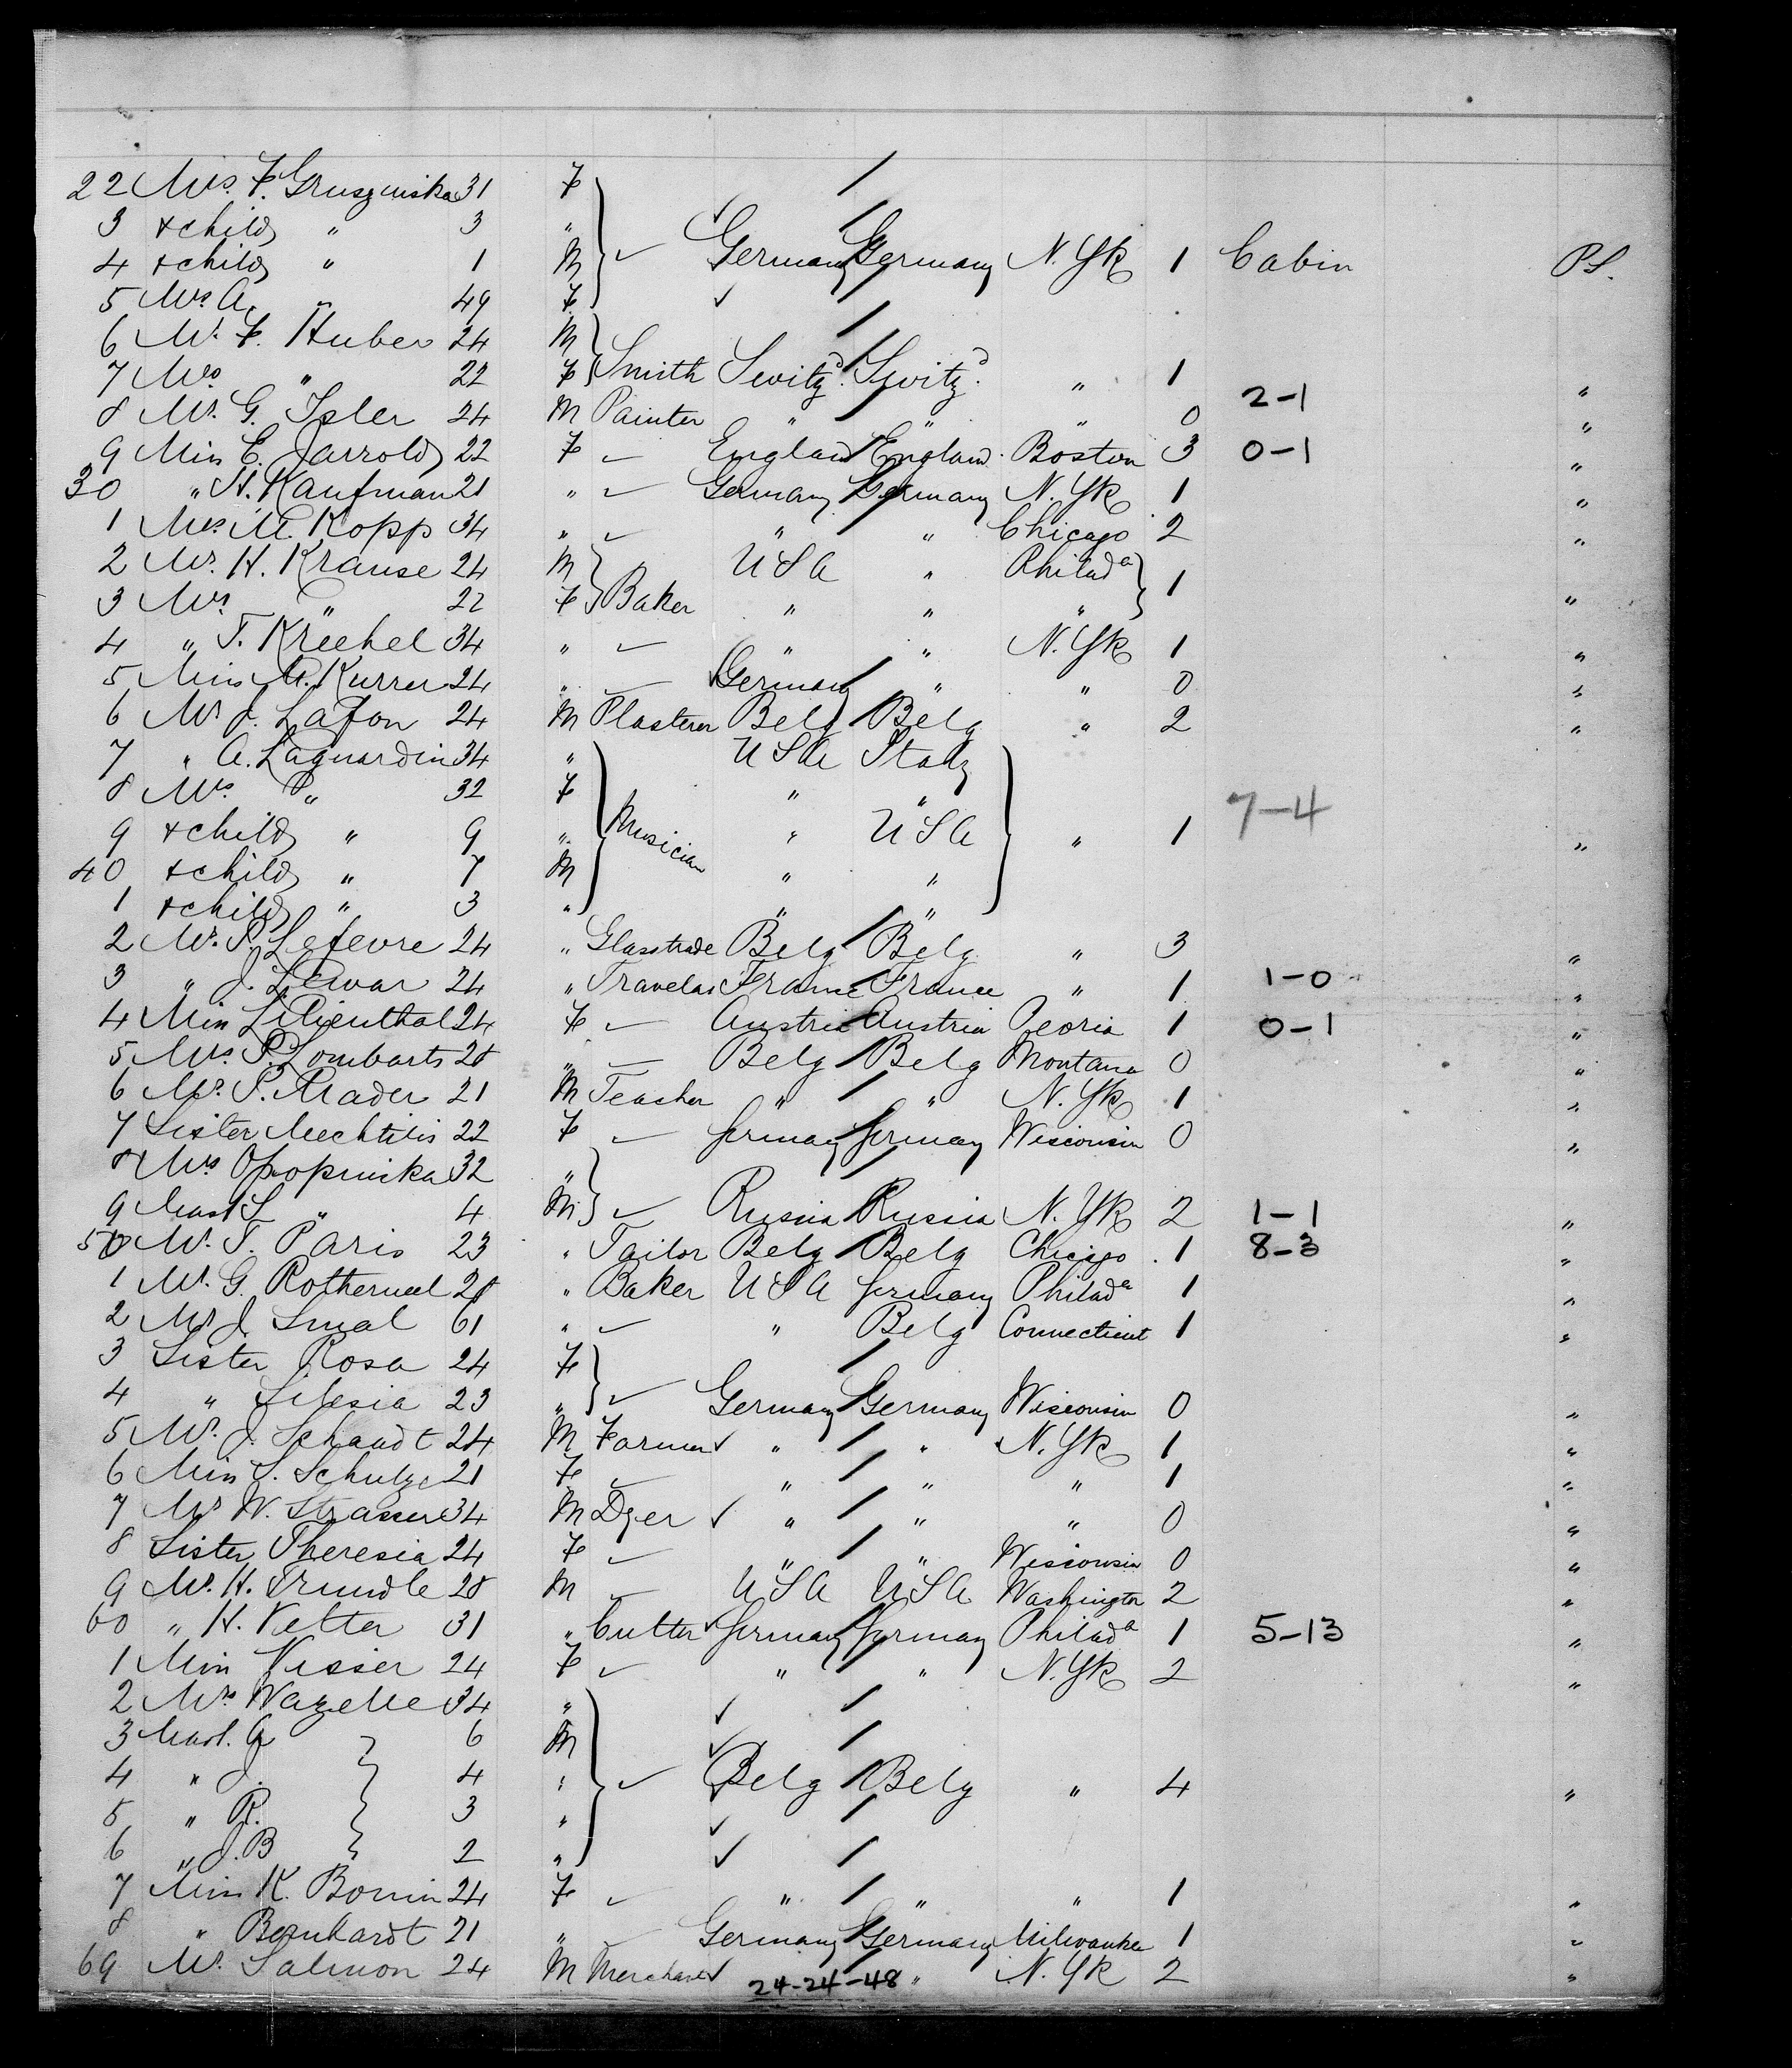 22 Mrs. F. Gruszinska 31 F
3 + child " 3 "
4 + child " 1 M ✓ Germany Germany N. Yk 1 Cabin P.S.
5 Mrs A. " 49 F
6 Mr. F. Huber 24 M
7 Mrs " 22 F Smith Switzd. Switzd. " 1 "
8 Mr. G. Isler 24 M Painter " " " 0 2-1 "
9 Miss E. Jarrold 22 F ✓ England England Boston 3 0-1 "
30 " H. Kaufman 21 " ✓ Germany Germany N. Yk 1 "
1 Mrs. M. Kopp 34 " ✓ " " Chicago 2 "
2 Mr. H. Krause 24 M USA " Philada
3 Mrs. " 22 F Baker " " " 1 "
4 " T. Krechel 34 " ✓ " " N. Yk 1 "
5 Miss M. Kurrer 24 " ✓ Germany " " 0 "
6 Mr J. Lafon 24 M Plasterer Belg Belg " 2 "
7 " A. Laguardia 34 " USA Italy
8 Mrs " 32 F " "
9 + child " 9 " Musician " USA " 1 7-4 "
40 + child " 7 M " "
1 + child " 3 " " "
2 Mr. P. Lefevre 24 " Glasstrade Belg Belg " 3 "
3 " J. Lewar 24 " Travelar France France " 1 1-0 "
4 Miss Lilienthal 24 F ✓ Austria Austria Peoria 1 0-1 "
5 Mrs. P. Lombarts 28 " ✓ Belg Belg Montana 0 "
6 Mr. P. Mader 21 M Teacher " " N. Yk 1 "
7 Sister Mechtilis 22 F ✓ Germany Germany Wisconsin 0 "
8 Mrs 32 "
9 Mast S. " 4 M ✓ Russia Russia N. Yk 2 1-1 "
50 Mr. T. Paris 23 " Tailor Belg Belg Chicago 1 8-3 "
1 Mr. G. Rothermel 28 " Baker USA Germany Philada 1 "
2 Mr J. Smal 61 " ✓ " Belg Connecticut 1 "
3 Sister Rosa 24 F
4 " Silesia 23 " ✓ Germany Germany Wisconsin 0 "
5 Mr. J. Schandt 24 M Farmer ✓ " " N. Yk 1 "
6 Miss S. Schulze 21 F ✓ " " " 1 "
7 Mr W. Strasser 34 M Dyer ✓ " " " 0 "
8 Sister Theresia 24 F ✓ " " Wisconsin 0 "
9 Mr. H. Trundle 28 M ✓ USA USA Washington 2 "
60 " H. Vetter 31 " Cutter Germany Germany Philada 1 5-13 "
1 Miss Visser 24 F ✓ " " N. Yk 2 "
2 Mrs Wazelle 34 " ✓
3 Mast. G 6 M ✓
4 " J. 4 " ✓ Belg Belg " 4 "
5 " R. 3 " ✓
6 " J.B 2 " ✓
7 Miss K. Bonin 24 F ✓ " " " 1 "
8 " Bernhardt 21 " ✓ Germany Germany Milwaukee 1 "
69 Mr. Salmon 24 M Merchant ✓ " N. Yk 2 "
24-24-48